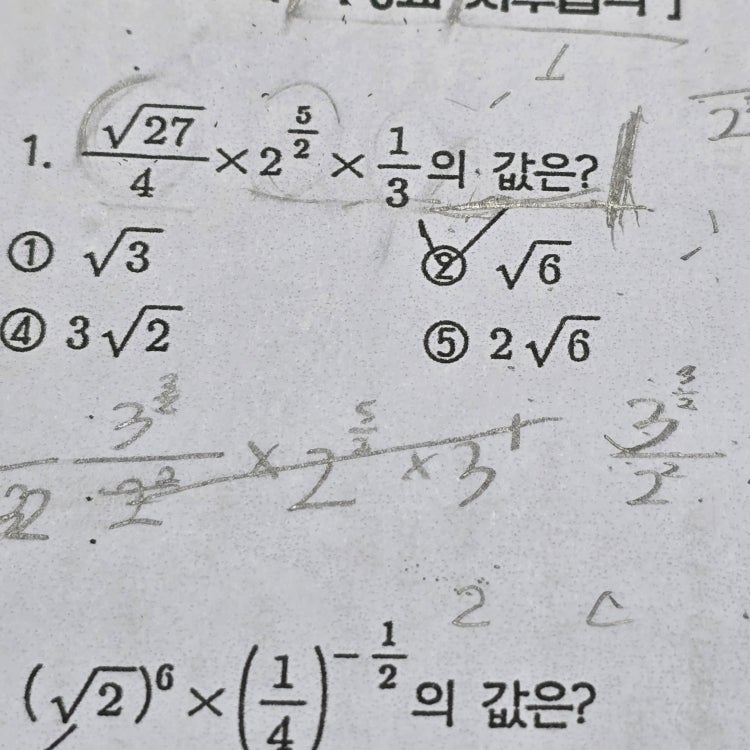 1. √27/4 × 2^(5/2) × 1/3 의 값은?
① √3 ② √6
④ 3√2 ⑤ 2√6
3^(3/2)/2^2 × 2^(5/2) × 3 3^(3/2)/2^2
(√2)^6 × (1/4)^(-1/2) 의 값은?